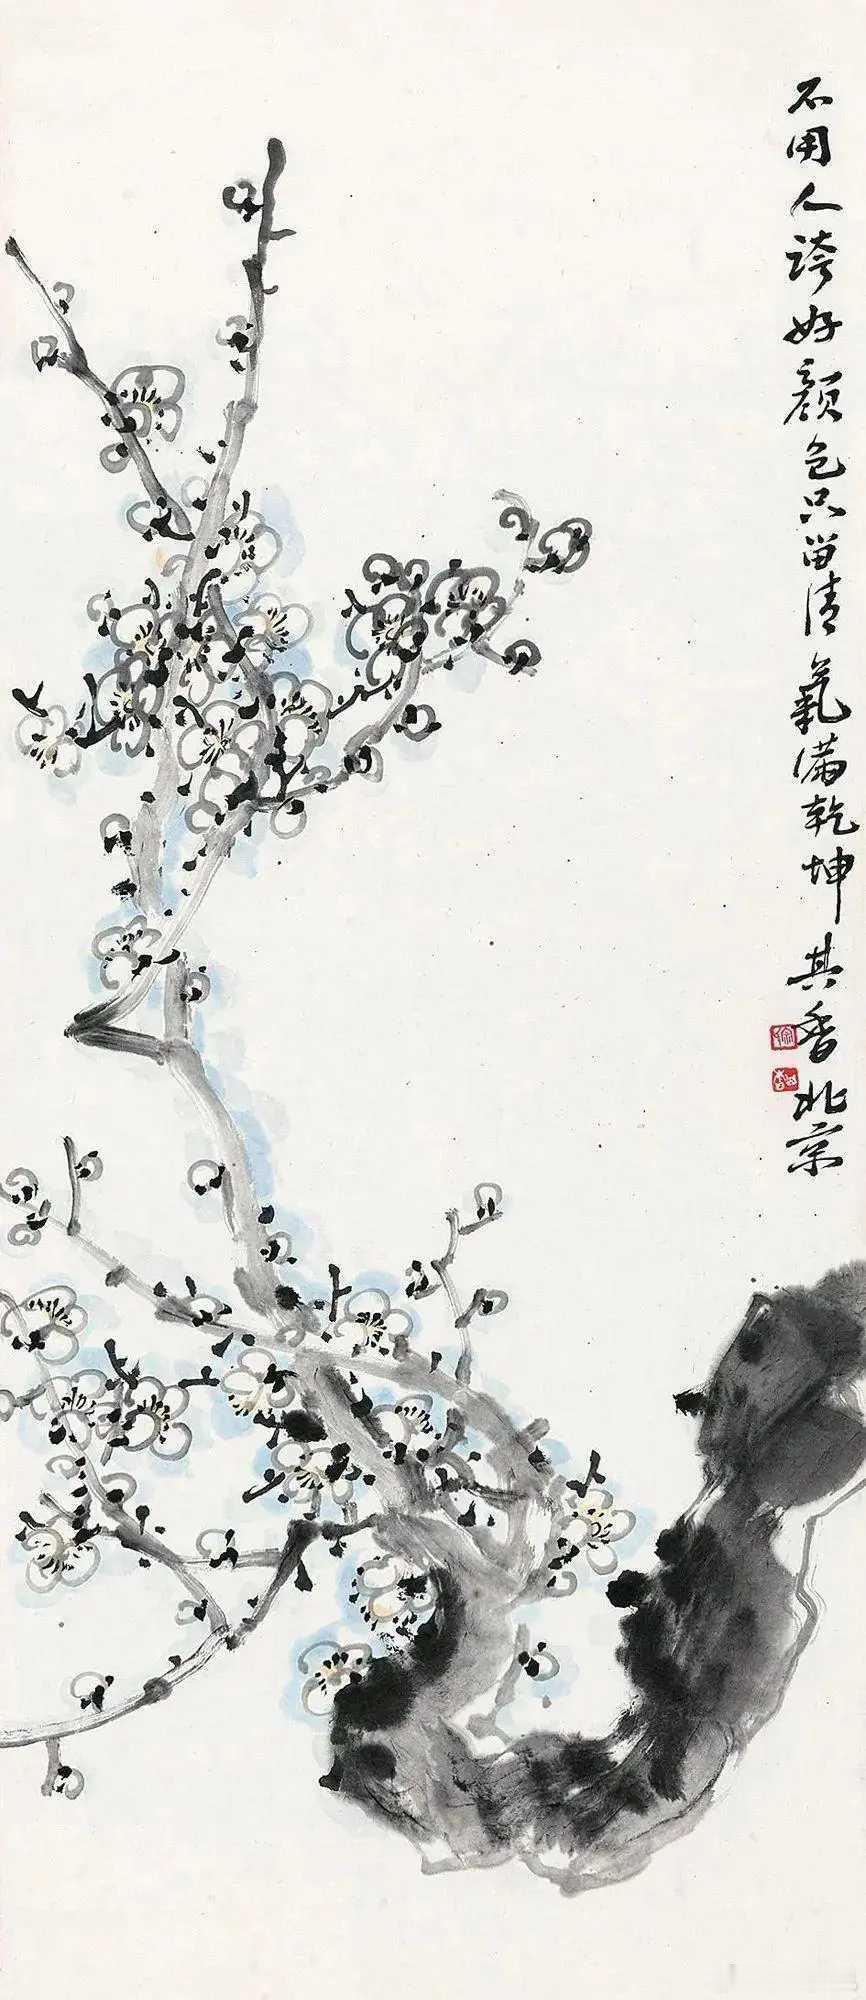 不用人誇好顏色只留清氣滿乾坤其香北京